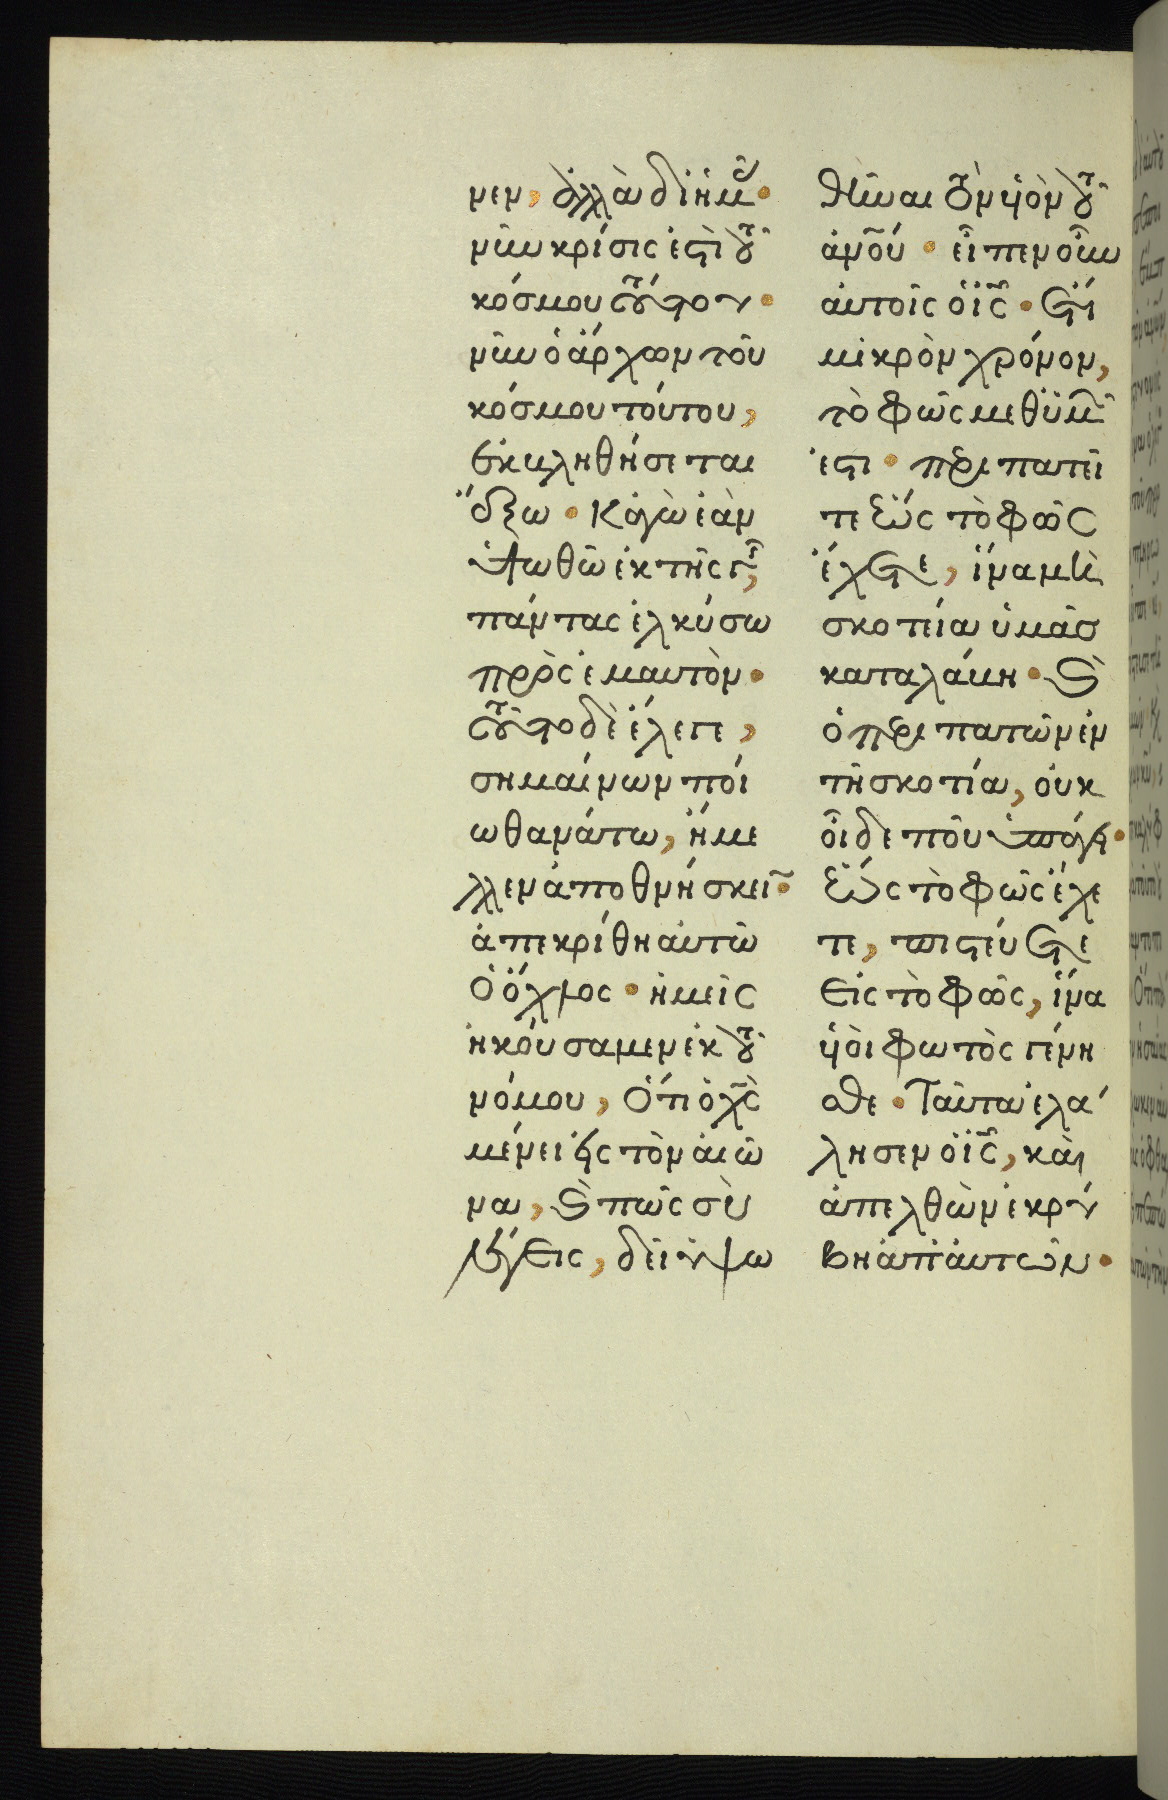 νεν, ἀλλὰ δι ἡμᾶς·
νῦν κρίσις ἐστὶ τοῦ
κόσμου τούτου·
νῦν ὁ ἄρχων τοῦ
κόσμου τούτου,
ἐκβληθήσεται
ἔξω· Κἀγὼ ἐὰν
ὑψωθῶ ἐκ τῆς γῆς,
πάντας ἑλκύσω
πρὸς ἐμαυτὸν·
τοῦτο δὲ ἔλεγε,
σημαίνων ποί
ω θανάτω, ἤμε
λλεν ἀποθνήσκειν·
ἀπεκρίθη αὐτῶ
ὁ ὄχλος· ἡμεῖς
ἠκούσαμεν ἐκ τοῦ
νόμου, ὅτι ὁ χς
μένει εἰς τὸν αἰῶ
να, καὶ πῶς σὺ
λέγεις, δεῖ ὑψω
θῆναι τὸν υἱὸν τοῦ
ἀνου· εἶπεν οὖν
αὐτοῖς ὁ ις· ἔτι
μικρὸν χρόνον,
τὸ φῶς μεθ ὑμῶν
ἐστι· περιπατεῖ
τε ἕως τὸ φῶς
ἔχετε, ἵνα μὴ
σκοτία ὑμᾶς
καταλάβη· καὶ
ὁ περιπατῶν ἐν
τῆ σκοτία, οὐκ
οἶδε ποῦ ὑπάγει·
ἕως τὸ φῶς ἔχε
τε, πιστεύετε
εἰς τὸ φῶς, ἵνα
υἱοὶ φωτὸς γένη
σθε· Ταῦτα ἐλά
λησεν ὁ ις, καὶ
ἀπελθὼν ἐκρύ
βη ἀπ αὐτῶν·